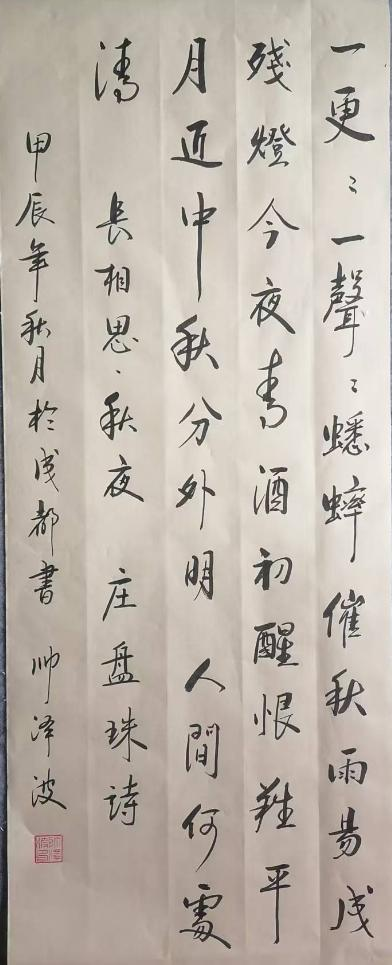 一更〻一聲〻蟋蟀催秋雨易成
殘燈今夜青酒初醒恨難平
月近中秋分外明 人間何處
清 長相思·秋夜 庄盘珠詩
甲辰年秋月於成都書 帅泽波